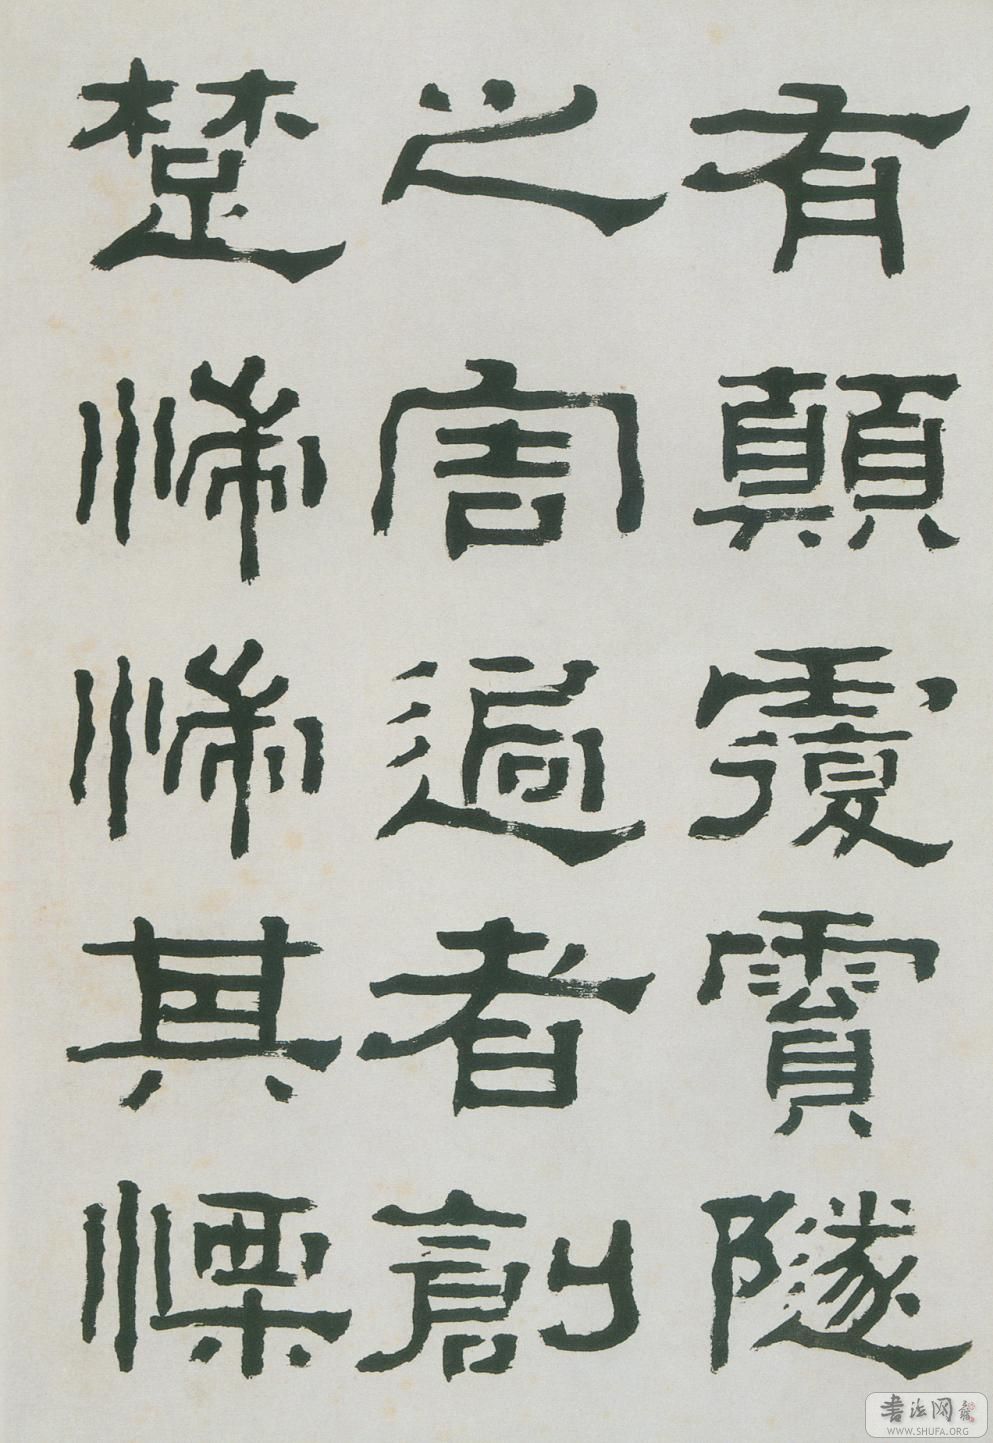 有顛覆霣隧
之害過者創
楚惴惴其慄
書法网
WWW.SHUFA.ORG